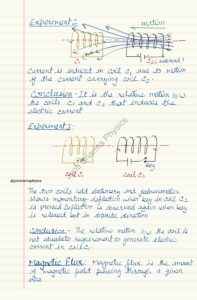 Experiment 2
motion
G
C₁
C₂
Current is induced in coil C₁ due to motion
of the current carrying coil C₂.
Conclusion - It is the relative motion b/w
the coils C₁ and C₂ that induces the
electric current
Experiment 3
@jyotisharmaphysics
Jyoti Sharma Physics
G
key
coil C₁
coil C₂
The two coils held stationary and galvanometer
shows momentary deflection when key in coil C₂
is pressed. Deflection is observed again when key
is released but in opposite direction
Conclusion - The relative motion b/w the coil is not
absolute requirement to generate electric
current in coil C₁
Magnetic Flux : Magnetic flux is the amount
of magnetic field passing through a given
area